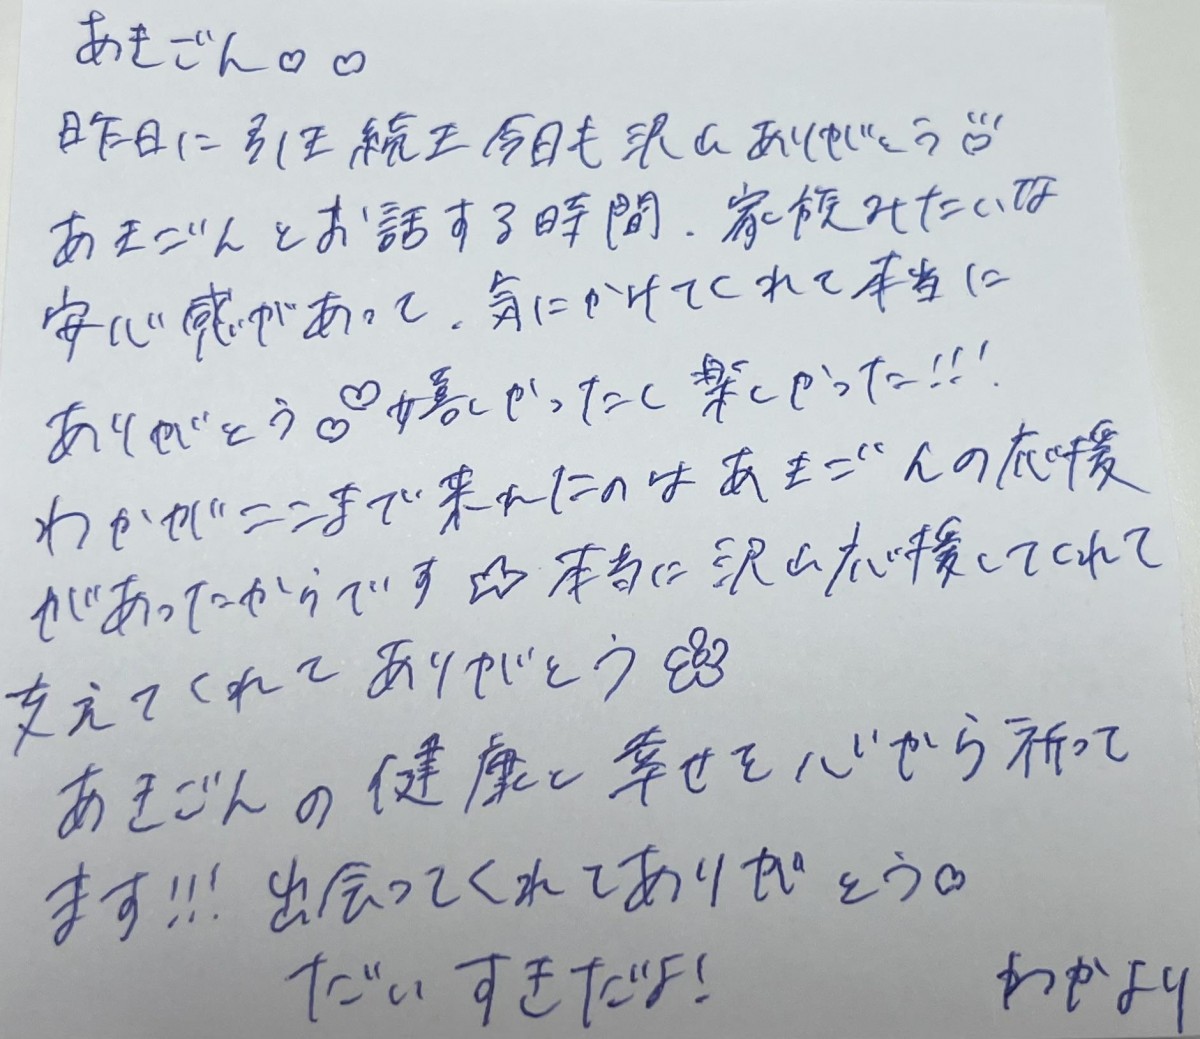 あきごん♡♡
昨日に引き続き今日も沢山ありがとう
あきごんとお話する時間、家族みたいな
安心感があって、気にかけてくれて本当に
ありがとう♡♡嬉しかったし楽しかった!!!
わかがここまで来れたのはあきごんの応援
があったからです☆本当に沢山応援してくれて
支えてくれてありがとう
あきごんの健康と幸せを心から祈って
ます!!!出会ってくれてありがとう♡
だいすきだよ!
わかより